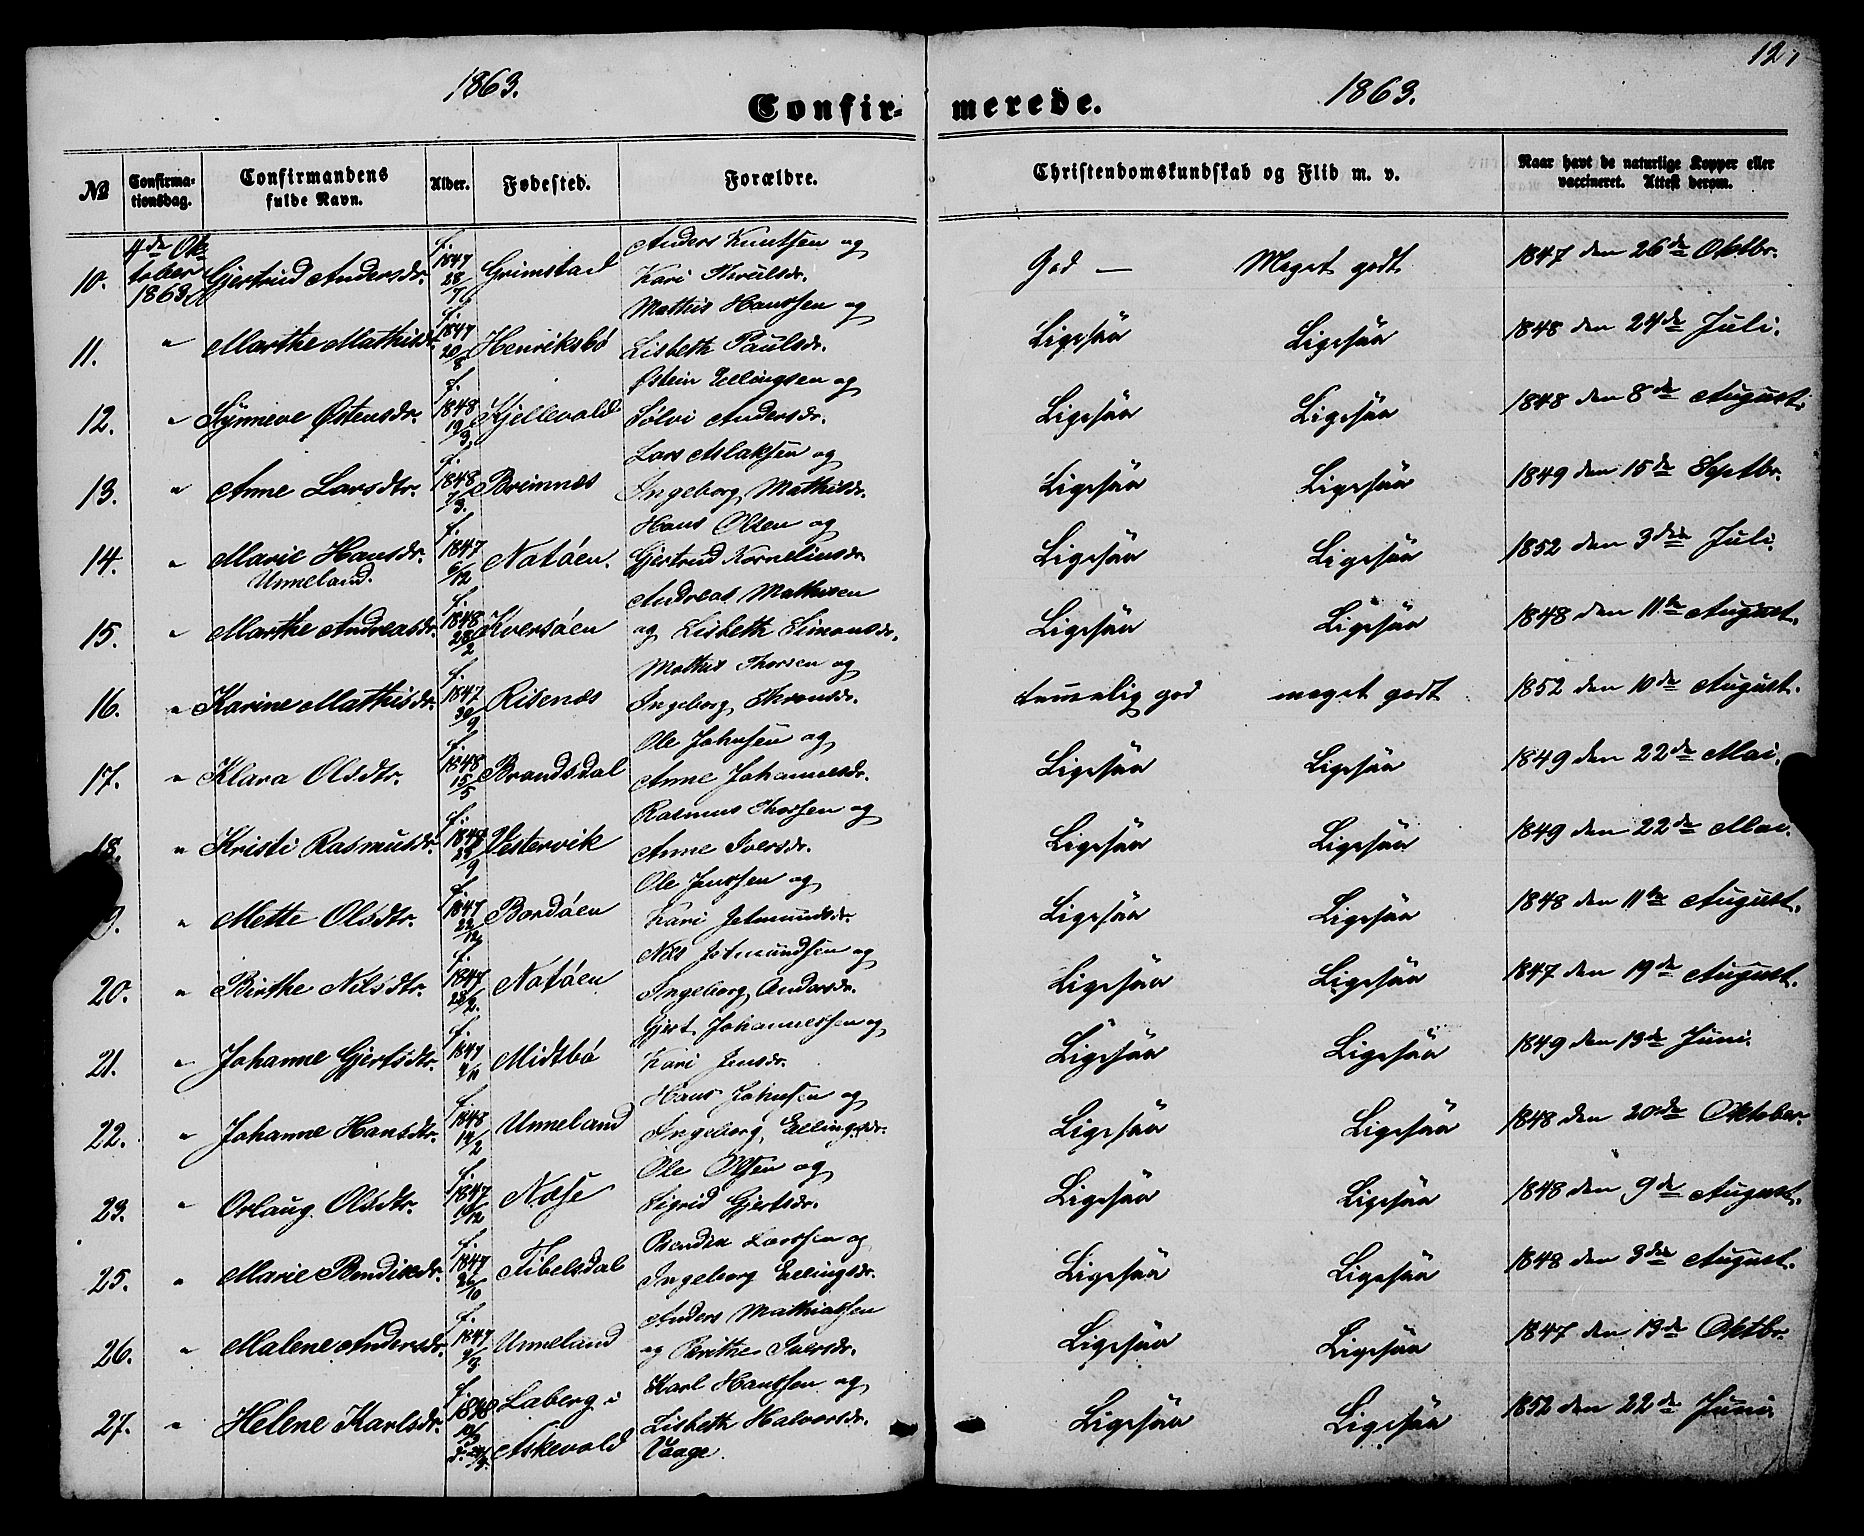 1863.
Confir-
merede.
1863.
№
Confirma-
tionsdag.
Confirmandens
fulde Navn.
Alder.
Fødested.
Forældre.
Christendomskundskab og Flid m. v.
Naar havt de naturlige Kopper eller
vaccineret. Attest derom.
10. 4de Oktober 1863. Gjertrud Andersdr. f. 1847 28/7 Grimstad Anders Knutsen og Kari Nerulsdr. God — Meget godt. 1847 den 26de Oktbr.
11. " Marthe Mathisdr. f. 1847 20/8 Henriksbø Mathis Hanssen og Lisbeth Paulsdr. Ligesaa Ligesaa 1848 den 24de Juli.
12. " Synneve Østensdr. f. 1848 19/3 Kjellevold Østein Ellingsen og Sølvi Andersdr. Ligesaa Ligesaa 1848 den 8de August.
13. " Anne Larsdtr. f. 1848 7/3 Brimnæs Lars Aslaksen og Ingeborg Mathisdr. Ligesaa Ligesaa 1849 den 15de Septbr.
14. " Marie Hansdr. Unneland. f. 1847 6/12 Natøen. Hans Olsen og Gjertrud Korneliusdr. Ligesaa Ligesaa 1852 den 3die Juli.
15. " Marthe Andreasdr. f. 1848 28/2 Kversøen Andreas Mathisen og Lisbeth Simonsdr. Ligesaa Ligesaa 1848 den 11te August.
16. " Karine Mathisdr. f. 1847 30/9 Risenæs Mathis Thorsen og Ingeborg temmelig god meget godt 1852 den 10de August.
17. " Klara Olsdtr. f. 1848 15/5 Brandsdal Ole Johnsen og Anne Johannesdr. Ligesaa Ligesaa 1849 den 22de Mai.
18. " Kristi Rasmusdr. f. 1848 /9 Vestervik Rasmus Thorsen og Anne Iversdr. Ligesaa Ligesaa 1849 den 22de Mai.
9. " Mette Olsdtr. f. 1847 22/12 Bordøen Ole Janssen og Kari Jetmundsdr. Ligesaa Ligesaa 1848 den 11te August.
20. " Birthe Nilsdtr. f. 1847 28/2. Natøen Nils Jetmundsen og Ingeborg Andersdr. Ligesaa Ligesaa 1847 den 19de August.
21. " Johanne Gjertsdtr. f. 1847 4/11 Midtbø Gjert Johannessen og Kari Jensdr. Ligesaa Ligesaa 1849 den 13de Juni.
22. " Johanne Hansdtr. f. 1848 14/2 Unneland Hans Johnsen og Ingeborg Ellingsdr. Ligesaa Ligesaa 1848 den 20de Oktober.
23. " Orlaug Olsdtr. f. 1847 /12 Næse Ole Olsen og Sigrid Gjertsdr. Ligesaa Ligesaa 1848 den 9de August.
25. " Marie Bendixdr. f. 1847 /10 Tibelsdal Bendix Larssen og Ingeborg Ellingsdr. Ligesaa Ligesaa 1848 den 3die August.
26. " Malene Andersdr. f. 1847 /3 Unneland Anders Mathiassen og Berithe Iversdr. Ligesaa Ligesaa 1847 den 13de Oktbr.
27. " Helene Karlsdr. f. 1848 Laberg i Askevold Karl Hanssen og Lisbeth Halvorsdr. Vaage. Ligesaa Ligesaa 1852 den 22de Juni.